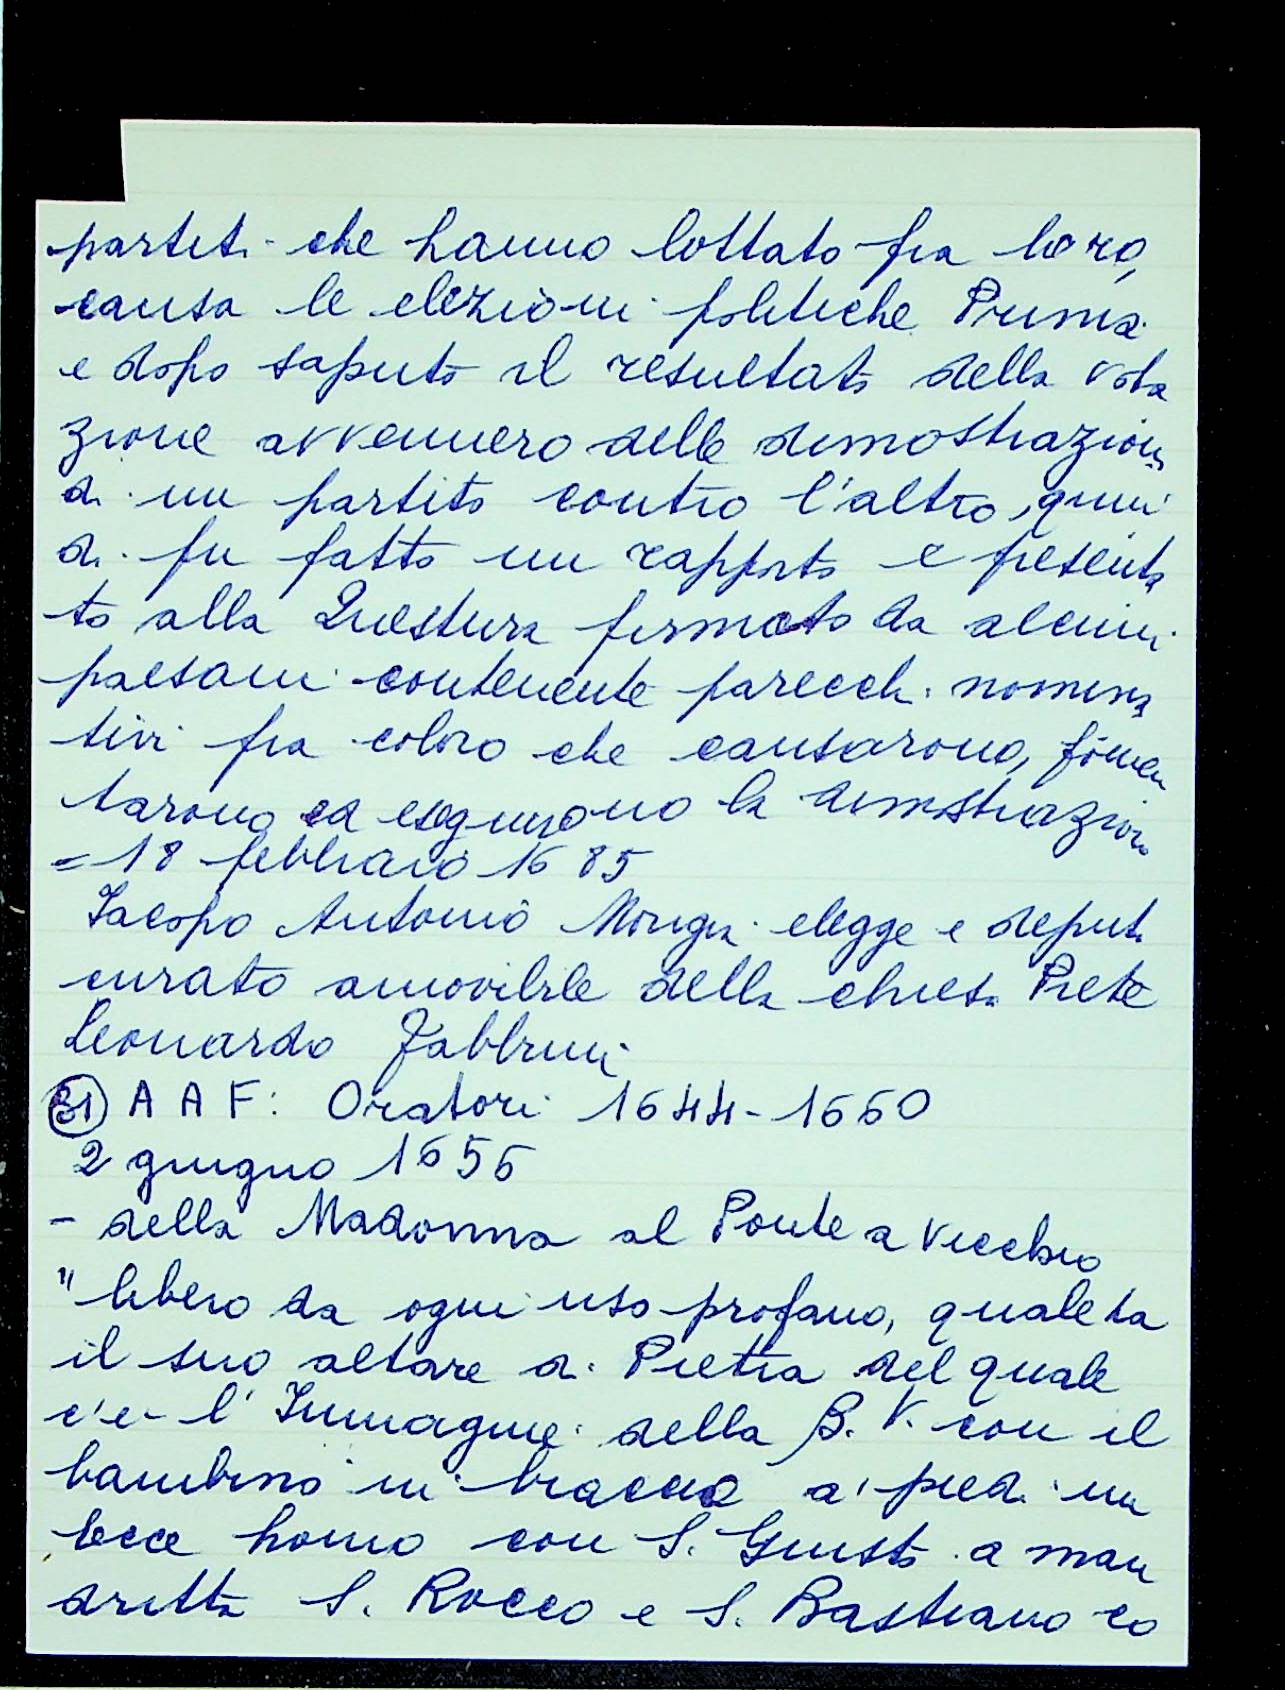 partiti che hanno lottato fra loro,
causa le elezioni politiche. Prima
e dopo saputo il resultato della vota
zione avvennero delle dimostrazioni
di un partito contro l'altro, quin
di fu fatto un rapporto e presenta
to alla Questura firmato da alcuni
paesani contenente parecchi nomina
tivi fra coloro che causarono, fomen
tarono ed eseguirono la dimostrazione
= 18 febbraio 1685
Jacopo Antonio elegge e deputa
curato amovibile della chiesa Prete
Leonardo Fabbrini
31 A A F: Oratori 1644-1660
2 giugno 1656
- della Madonna al Ponte a Vicchio
"libero da ogni uso profano, quale ha
il suo altare di Pietra del quale
c'e- l'Immagine della B. V. con il
bambino in braccio a' piedi un
Ecce homo con S. Giusto a man
dritta S. Rocco e S. Bastiano co